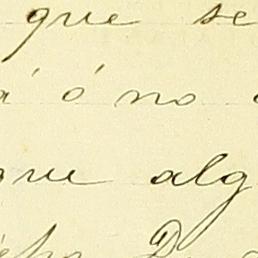 que se
á ó no
que alg